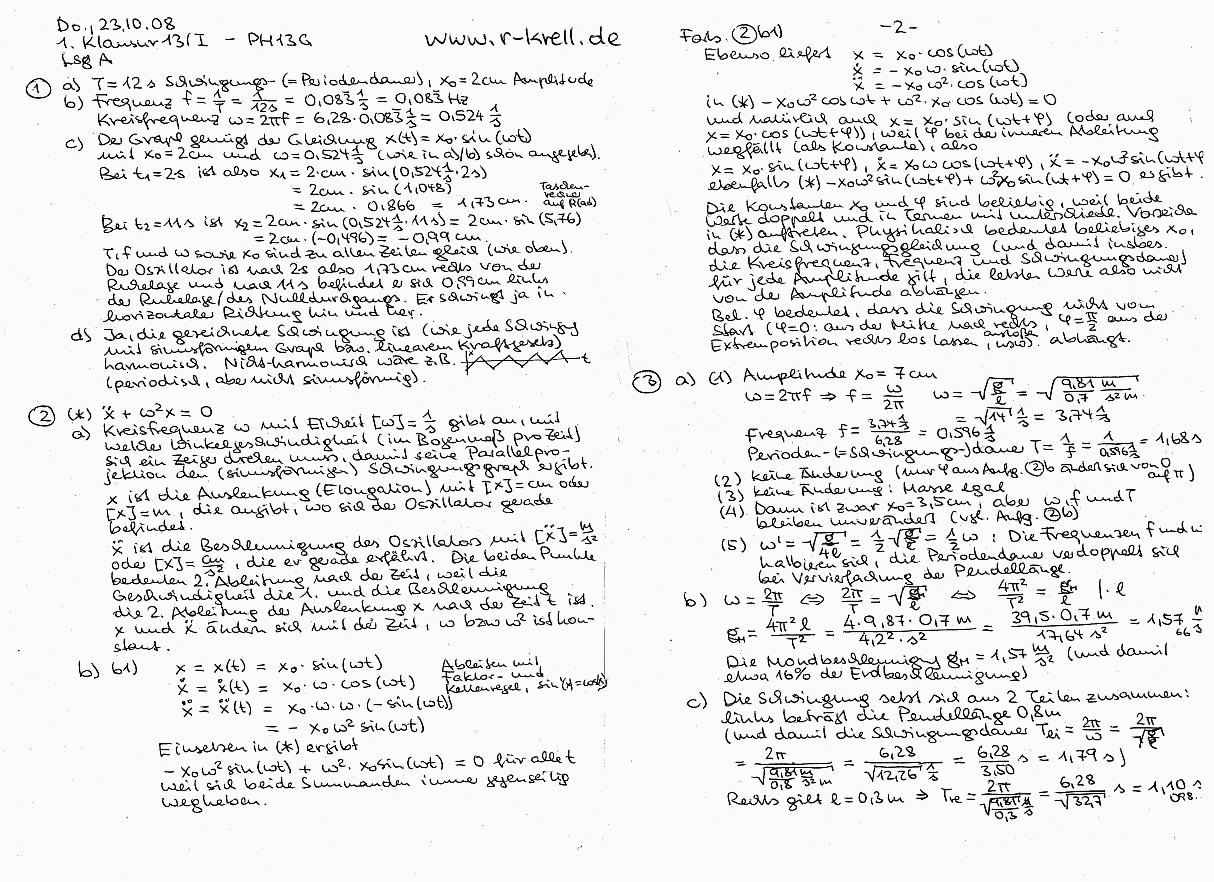 Do., 23.10.08
1. Klausur 13/I - PH13G www.r-krell.de
Lsg A
① a) T = 12 s Schwingungs- (= Periodendauer), x₀ = 2cm Amplitude
b) Frequenz f = 1/T = 1/12s = 0,083 1/s = 0,083 Hz
Kreisfrequenz ω = 2πf = 6,28 · 0,083 1/s = 0,524 1/s
c) Der Graph genügt der Gleichung x(t) = x₀ · sin(ωt)
mit x₀ = 2cm und ω = 0,524 1/s (wie in a)/b) schon angegeben).
Bei t₁ = 2s ist also x₁ = 2 · cm · sin(0,524 1/s · 2s)
= 2cm · sin(1,048)
= 2cm · 0,866 = 1,73 cm. Taschen-
rechner
auf R(ad)
Bei t₂ = 11s ist x₂ = 2cm · sin(0,524 1/s · 11s) = 2cm · sin(5,76)
= 2cm · (-0,496) = -0,99 cm.
T, f und ω sowie x₀ sind zu allen Zeiten gleich (wie oben).
Der Oszillator ist nach 2s also 1,73 cm rechts von der
Ruhelage und nach 11s befindet er sich 0,99 cm links
der Ruhelage/des Nulldurchgangs. Er schwingt ja in
horizontaler Richtung hin und her.
d) Ja, die gezeichnete Schwingung ist (wie jede Schwingg
mit sinusförmigem Graph bzw. linearem Kraftgesetz)
harmonisch. Nicht-harmonisch wäre z.B. t
(periodisch, aber nicht sinusförmig).
② (*) ẍ + ω²x = 0
a) Kreisfrequenz ω mit Einheit [ω] = 1/s gibt an, mit
welcher Winkelgeschwindigkeit (im Bogenmaß pro Zeit)
sich ein Zeiger drehen muss, damit seine Parallelpro-
jektion den (sinusförmigen) Schwingungsgraph ergibt.
x ist die Auslenkung (Elongation) mit [x] = cm oder
[x] = m, die angibt, wo sich der Oszillator gerade
befindet.
ẍ ist die Beschleunigung des Oszillators mit [ẍ] = m/s²
oder [ẍ] = cm/s², die er gerade erfährt. Die beiden Punkte
bedeuten 2. Ableitung nach der Zeit, weil die
Geschwindigkeit die 1. und die Beschleunigung
die 2. Ableitung der Auslenkung x nach der Zeit t ist.
x und ẍ ändern sich mit der Zeit, ω bzw ω² ist kon-
stant.
b) b1) x = x(t) = x₀ · sin(ωt) Ableiten mit
ẋ = ẋ(t) = x₀ · ω · cos(ωt) Faktor- und
Kettenregel, sin'(x) = cos(x)
ẍ = ẍ(t) = x₀ · ω · ω · (-sin(ωt))
= -x₀ω² sin(ωt)
Einsetzen in (*) ergibt
-x₀ω² sin(ωt) + ω² · x₀ sin(ωt) = 0 für alle t
weil sich beide Summanden immer gegenseitig
wegheben.
-2-
Forts. ② b1)
Ebenso liefert x = x₀ · cos(ωt)
ẋ = -x₀ω · sin(ωt)
ẍ = -x₀ω² · cos(ωt)
in (*) -x₀ω² cosωt + ω² · x₀ · cos(ωt) = 0
und natürlich auch x = x₀ · sin(ωt+φ) (oder auch
x = x₀ · cos(ωt+φ)), weil φ bei der inneren Ableitung
wegfällt (als Konstante), also
x = x₀ · sin(ωt+φ), ẋ = x₀ω cos(ωt+φ), ẍ = -x₀ω² sin(ωt+φ
ebenfalls (*) -x₀ω² sin(ωt+φ) + ω²x₀ sin(ωt+φ) = 0 ergibt.
Die Konstanten x₀ und φ sind beliebig, weil beide
Werte doppelt und in Termen mit untersch. Vorzeichen
in (*) auftreten. Physikalisch bedeutet beliebiges x₀,
dass die Schwingungsgleichung (und damit insbes.
die Kreisfrequenz, Frequenz und Schwingungsdauer)
für jede Amplitude gilt, die letzten Werte also nicht
von der Amplitude abhängen.
Bel. φ bedeutet, dass die Schwingung nicht vom
Start (φ=0: aus der Mitte nach rechts, φ = π/2 aus der
Extremposition rechts los lassen, usw.) abhängt.
③ a) (1) Amplitude x₀ = 7 cm
ω = 2πf ⇒ f = ω/2π ω = √(g/l) = √(9,81 m / 0,7 s² m)
= √14 1/s = 3,74 1/s
Frequenz f = 3,74 1/s / 6,28 = 0,596 1/s
Perioden- (= Schwingungs-)dauer T = 1/f = 1/0,596 1/s = 1,68 s
(2) keine Änderung (nur φ aus Aufg. ② b ändert sich von 0
auf π)
(3) keine Änderung: Masse egal
(4) Dann ist zwar x₀ = 3,5cm, aber ω, f und T
bleiben unverändert (vgl. Aufg. ② b)
(5) ω' = √(g/4l) = 1/2 √(g/l) = 1/2 ω: Die Frequenzen f und ω
halbieren sich, die Periodendauer verdoppelt sich
bei Vervierfachung der Pendellänge.
b) ω = 2π/T ⇔ 2π/T = √(g/l) ⇔ 4π²/T² = g_M/l | · l
g_M = 4π² l / T² = 4 · 9,87 · 0,7 m / 4,2² · s² = 39,5 · 0,7 m / 17,64 s² = 1,57 m/s
66
Die Mondbeschleunigg g_M = 1,57 m/s² (und damit
etwa 16% der Erdbeschleunigung)
c) Die Schwingung setzt sich aus 2 Teilen zusammen:
links beträgt die Pendellänge 0,8m
(und damit die Schwingungsdauer T_li = 2π/ω = 2π/√(g/l)
= 2π / √(9,81 m / 0,8 s² m) = 6,28 / √12,26 1/s = 6,28/3,50 s = 1,79 s)
Rechts gilt l = 0,3 m ⇒ T_re = 2π / √(9,81/0,3 1/s) = 6,28/√32,7 s = 1,10 s
098..